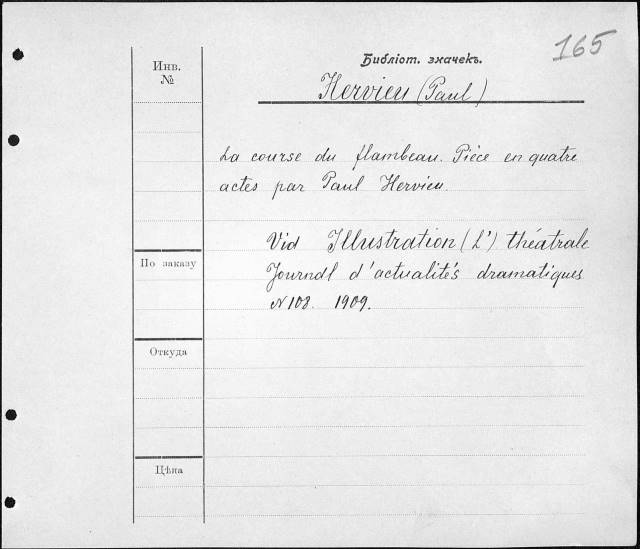 165
Библіот. значекъ.
Hervieu (Paul)
Инв.
№
La course du flambeau. Pièce en quatre
actes par Paul Hervieu.
Vid Illustration (L') théâtrale
Journal d'actualités dramatiques
N 108. 1909.
По заказу
Откуда
Цѣна